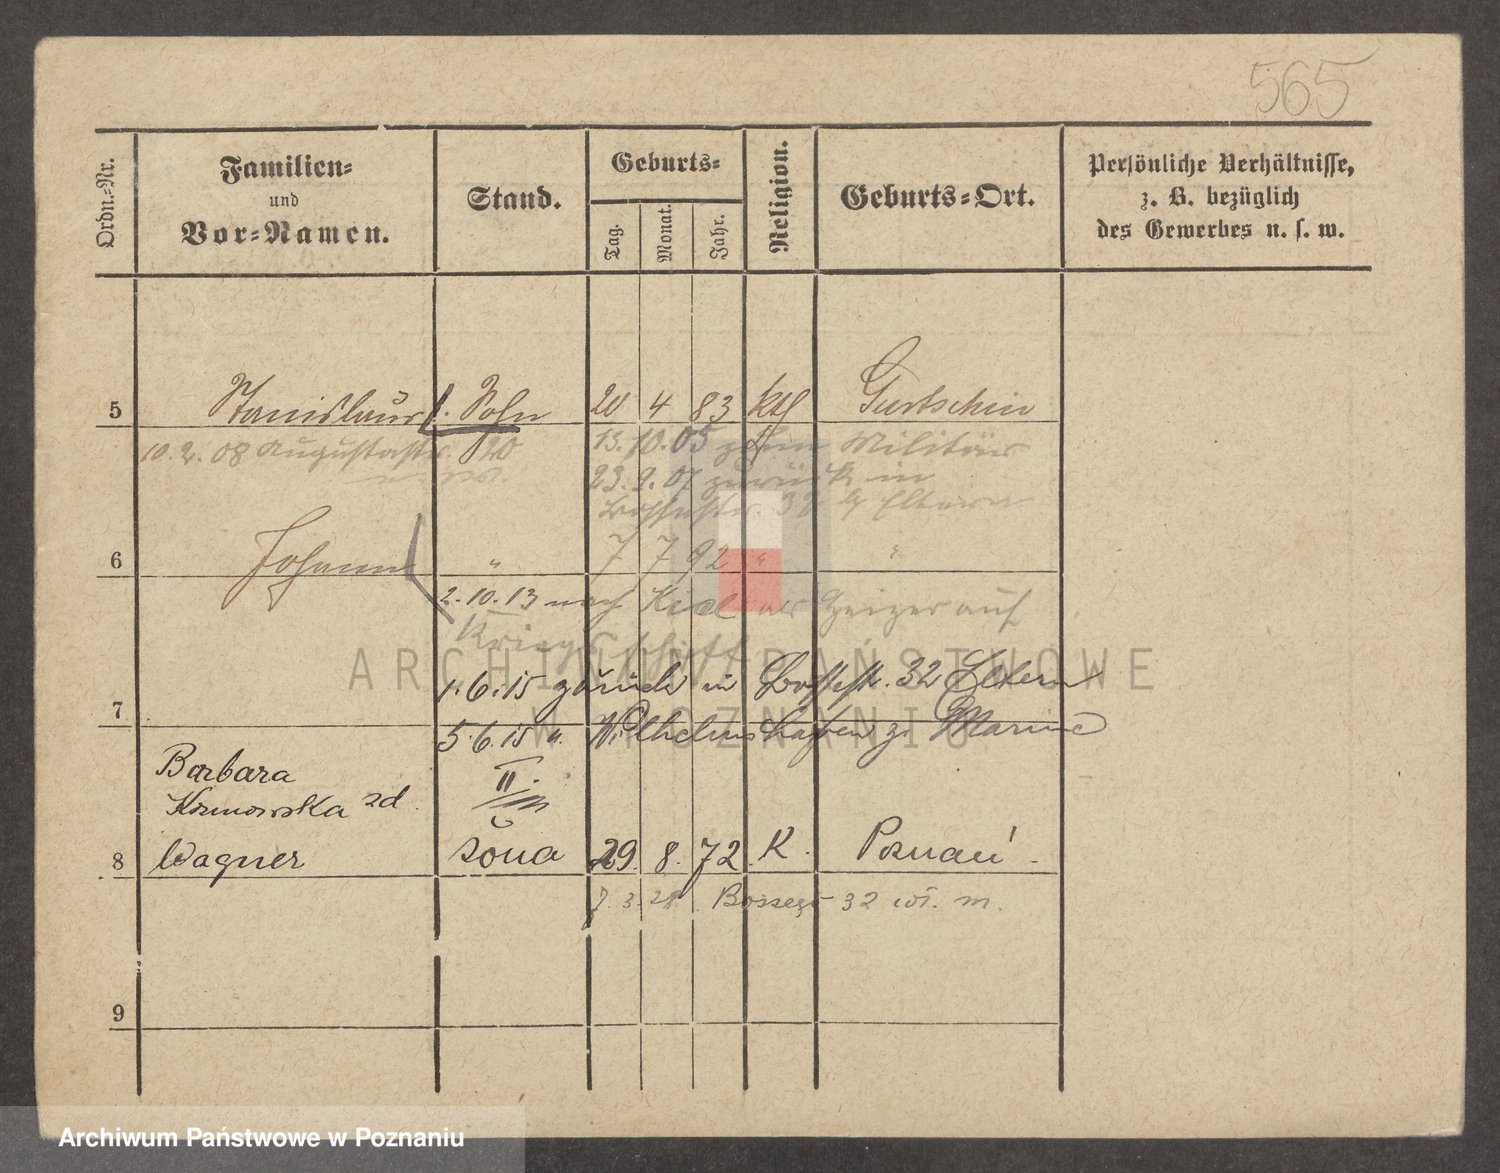 565
Ordn.=Nr.
Familien=
und
Vor=Namen.
Stand.
Geburts=
Tag.
Monat.
Jahr.
Religion.
Geburts=Ort.
Persönliche Verhältnisse,
z. B. bezüglich
des Gewerbes u. s. w.
5 Stanislaus Sohn 20 4 83 kth Gurtschin
10. 2. 08 Augustastr. 20
13. 10. 05 zum Militär
23. 9. 07 zurück in
32 Eltern
6 Johann " 7 7 92 " "
2. 10. 13 nach Kiel als Heizer auf
Kriegsschiff
1. 6. 15 zurück in Bossestr. 32 Eltern
7
5. 6. 15 n. Wilhelmshafen z. Marine
Barbara II.
Kosmowska zd.
8 Wagner żona 29. 8. 72 K. Poznań.
7. 3. Bossego 32 wł. m.
9
ARCHIWUM PAŃSTWOWE
W POZNANIU
Archiwum Państwowe w Poznaniu